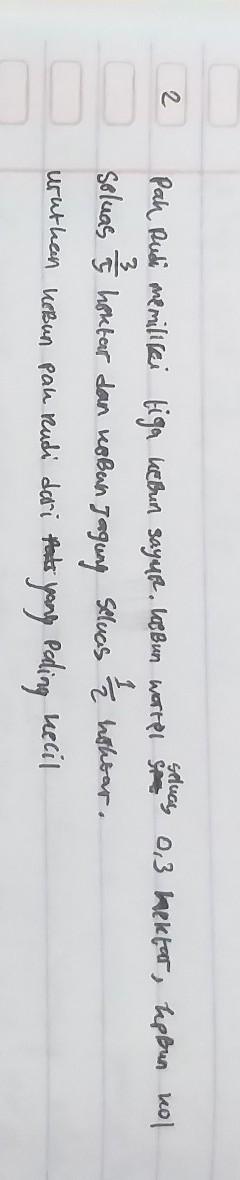 2 Pak Rudi memiliki tiga kebun sayur. kebun wortel seluas 0,3 hektar, kebun kol
seluas 3/5 hektar dan kebun Jagung seluas 1/2 hektar.
urutkan kebun pak rudi dari yang Paling kecil